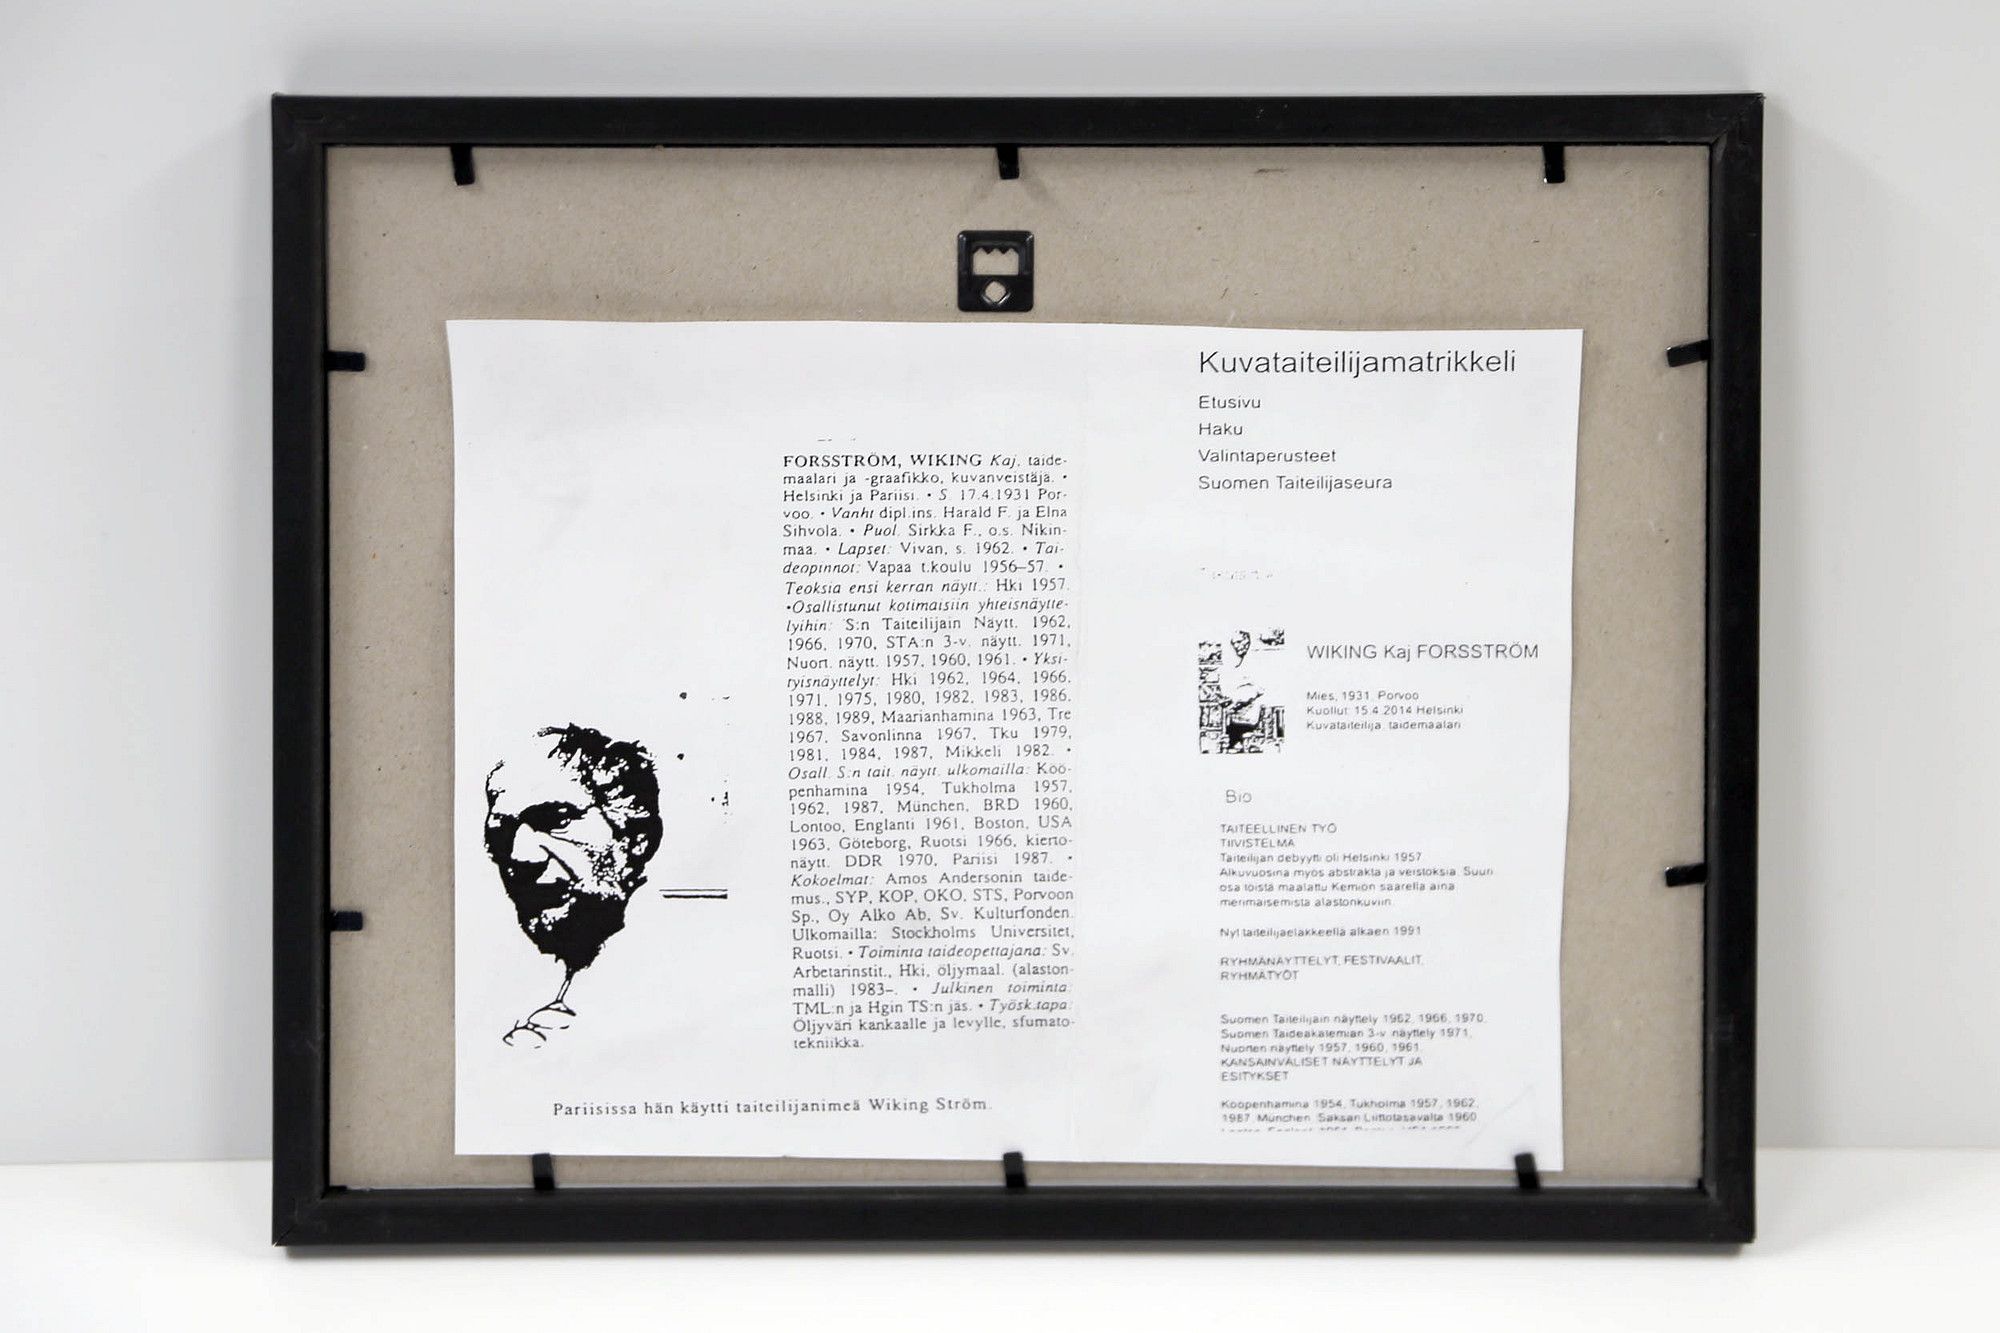 FORSSTRÖM, WIKING Kaj, taide-
maalari ja -graafikko, kuvanveistäjä. •
Helsinki ja Pariisi. • S. 17.4.1931 Por-
voo. • Vanht dipl.ins. Harald F. ja Elna
Sihvola. • Puol. Sirkka F., o.s. Nikin-
maa. • Lapset: Vivan, s. 1962. • Tai-
deopinnot: Vapaa t.koulu 1956–57. •
Teoksia ensi kerran näytt.: Hki 1957.
•Osallistunut kotimaisiin yhteisnäytte-
lyihin: S:n Taiteilijain Näytt. 1962,
1966, 1970, STA:n 3-v. näytt. 1971,
Nuort. näytt. 1957, 1960, 1961. • Yksi-
tyisnäyttelyt: Hki 1962, 1964, 1966,
1971, 1975, 1980, 1982, 1983, 1986,
1988, 1989, Maarianhamina 1963, Tre
1967, Savonlinna 1967, Tku 1979,
1981, 1984, 1987, Mikkeli 1982. •
Osall. S:n tait. näytt. ulkomailla: Köö-
penhamina 1954, Tukholma 1957,
1962, 1987, München, BRD 1960,
Lontoo, Englanti 1961, Boston, USA
1963, Göteborg, Ruotsi 1966, kierto-
näytt. DDR 1970, Pariisi 1987. •
Kokoelmat: Amos Andersonin taide-
mus., SYP, KOP, OKO, STS, Porvoon
Sp., Oy Alko Ab, Sv. Kulturfonden.
Ulkomailla: Stockholms Universitet,
Ruotsi. • Toiminta taideopettajana: Sv.
Arbetarinstit., Hki, öljymaal. (alaston-
malli) 1983–. • Julkinen toiminta:
TML:n ja Hgin TS:n jäs. • Työsk.tapa:
Öljyväri kankaalle ja levylle, sfumato-
tekniikka.
Pariisissa hän käytti taiteilijanimeä Wiking Ström.
Kuvataiteilijamatrikkeli
Etusivu
Haku
Valintaperusteet
Suomen Taiteilijaseura
WIKING Kaj FORSSTRÖM
Mies, 1931, Porvoo
Kuollut: 15.4.2014 Helsinki
Kuvataiteilija, taidemaalari
Bio
TAITEELLINEN TYÖ
TIIVISTELMÄ
Taiteilijan debyytti oli Helsinki 1957
Alkuvuosina myös abstrakta ja veistoksia. Suuri
osa töistä maalattu Kemiön saarella aina
merimaisemista alastonkuviin.
Nyt taiteilijaeläkkeellä alkaen 1991
RYHMÄNÄYTTELYT, FESTIVAALIT,
RYHMÄTYÖT
Suomen Taiteilijain näyttely 1962, 1966, 1970,
Suomen Taideakatemian 3-v. näyttely 1971,
Nuorten näyttely 1957, 1960, 1961.
KANSAINVÄLISET NÄYTTELYT JA
ESITYKSET
Kööpenhamina 1954, Tukholma 1957, 1962,
1987, München, Saksan Liittotasavalta 1960